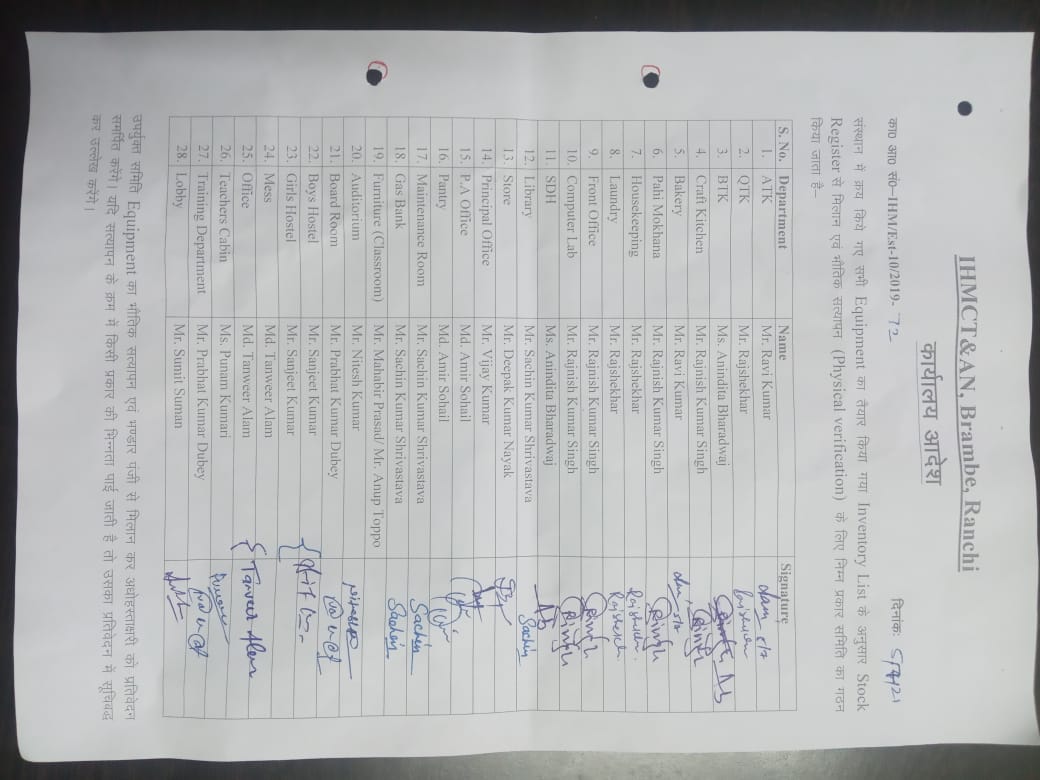 IHMCT&AN, Brambe, Ranchi
कार्यालय आदेश
का० आ० सं०–IHM/Est-10/2019- 72 दिनांक:
संस्थान में क्रय किये गए सभी Equipment का तैयार किया गया Inventory List के अनुसार Stock
Register से मिलान एवं भौतिक सत्यापन (Physical verification) के लिए निम्न प्रकार समिति का गठन
किया जाता है–
S. No. Department Name Signature
1. ATK Mr. Ravi Kumar
2. QTK Mr. Rajshekhar
3. BTK Ms. Anindita Bharadwaj AB
4. Craft Kitchen Mr. Rajnish Kumar Singh RSingh
5. Bakery Mr. Ravi Kumar
6. Pahi Mokhana Mr. Rajnish Kumar Singh RSingh
7. Housekeeping Mr. Rajshekhar
8. Laundry Mr. Rajshekhar
9. Front Office Mr. Rajnish Kumar Singh RSingh
10. Computer Lab Mr. Rajnish Kumar Singh RSingh
11. SDH Ms. Anindita Bharadwaj AB
12. Library Mr. Sachin Kumar Shrivastava Sachin
13. Store Mr. Deepak Kumar Nayak
14. Principal Office Mr. Vijay Kumar
15. P.A Office Md. Amir Sohail
16. Pantry Md. Amir Sohail
17. Maintenance Room Mr. Sachin Kumar Shrivastava Sachin
18. Gas Bank Mr. Sachin Kumar Shrivastava Sachin
19. Furniture (Classroom) Mr. Mahabir Prasad/ Mr. Anup Toppo
20. Auditorium Mr. Nitesh Kumar
21. Board Room Mr. Prabhat Kumar Dubey
22. Boys Hostel Mr. Sanjeet Kumar
23. Girls Hostel Mr. Sanjeet Kumar
24. Mess Md. Tanweer Alam
25. Office Md. Tanweer Alam Tanweer Alam
26. Teachers Cabin Ms. Punam Kumari
27. Training Department Mr. Prabhat Kumar Dubey
28. Lobby Mr. Sumit Suman
उपर्युक्त समिति Equipment का भौतिक सत्यापन एवं भण्डार पंजी से मिलान कर अधोहस्ताक्षरी को प्रतिवेदन
समर्पित करेंगे। यदि सत्यापन के क्रम में किसी प्रकार की भिन्नता पाई जाती है तो उसका प्रतिवेदन में सूचिबद्ध
कर उल्लेख करेंगे।